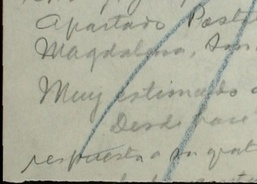 Apartado Post
Magdalena, Son
Muy estimado
Desde hace
respuesta a su grat